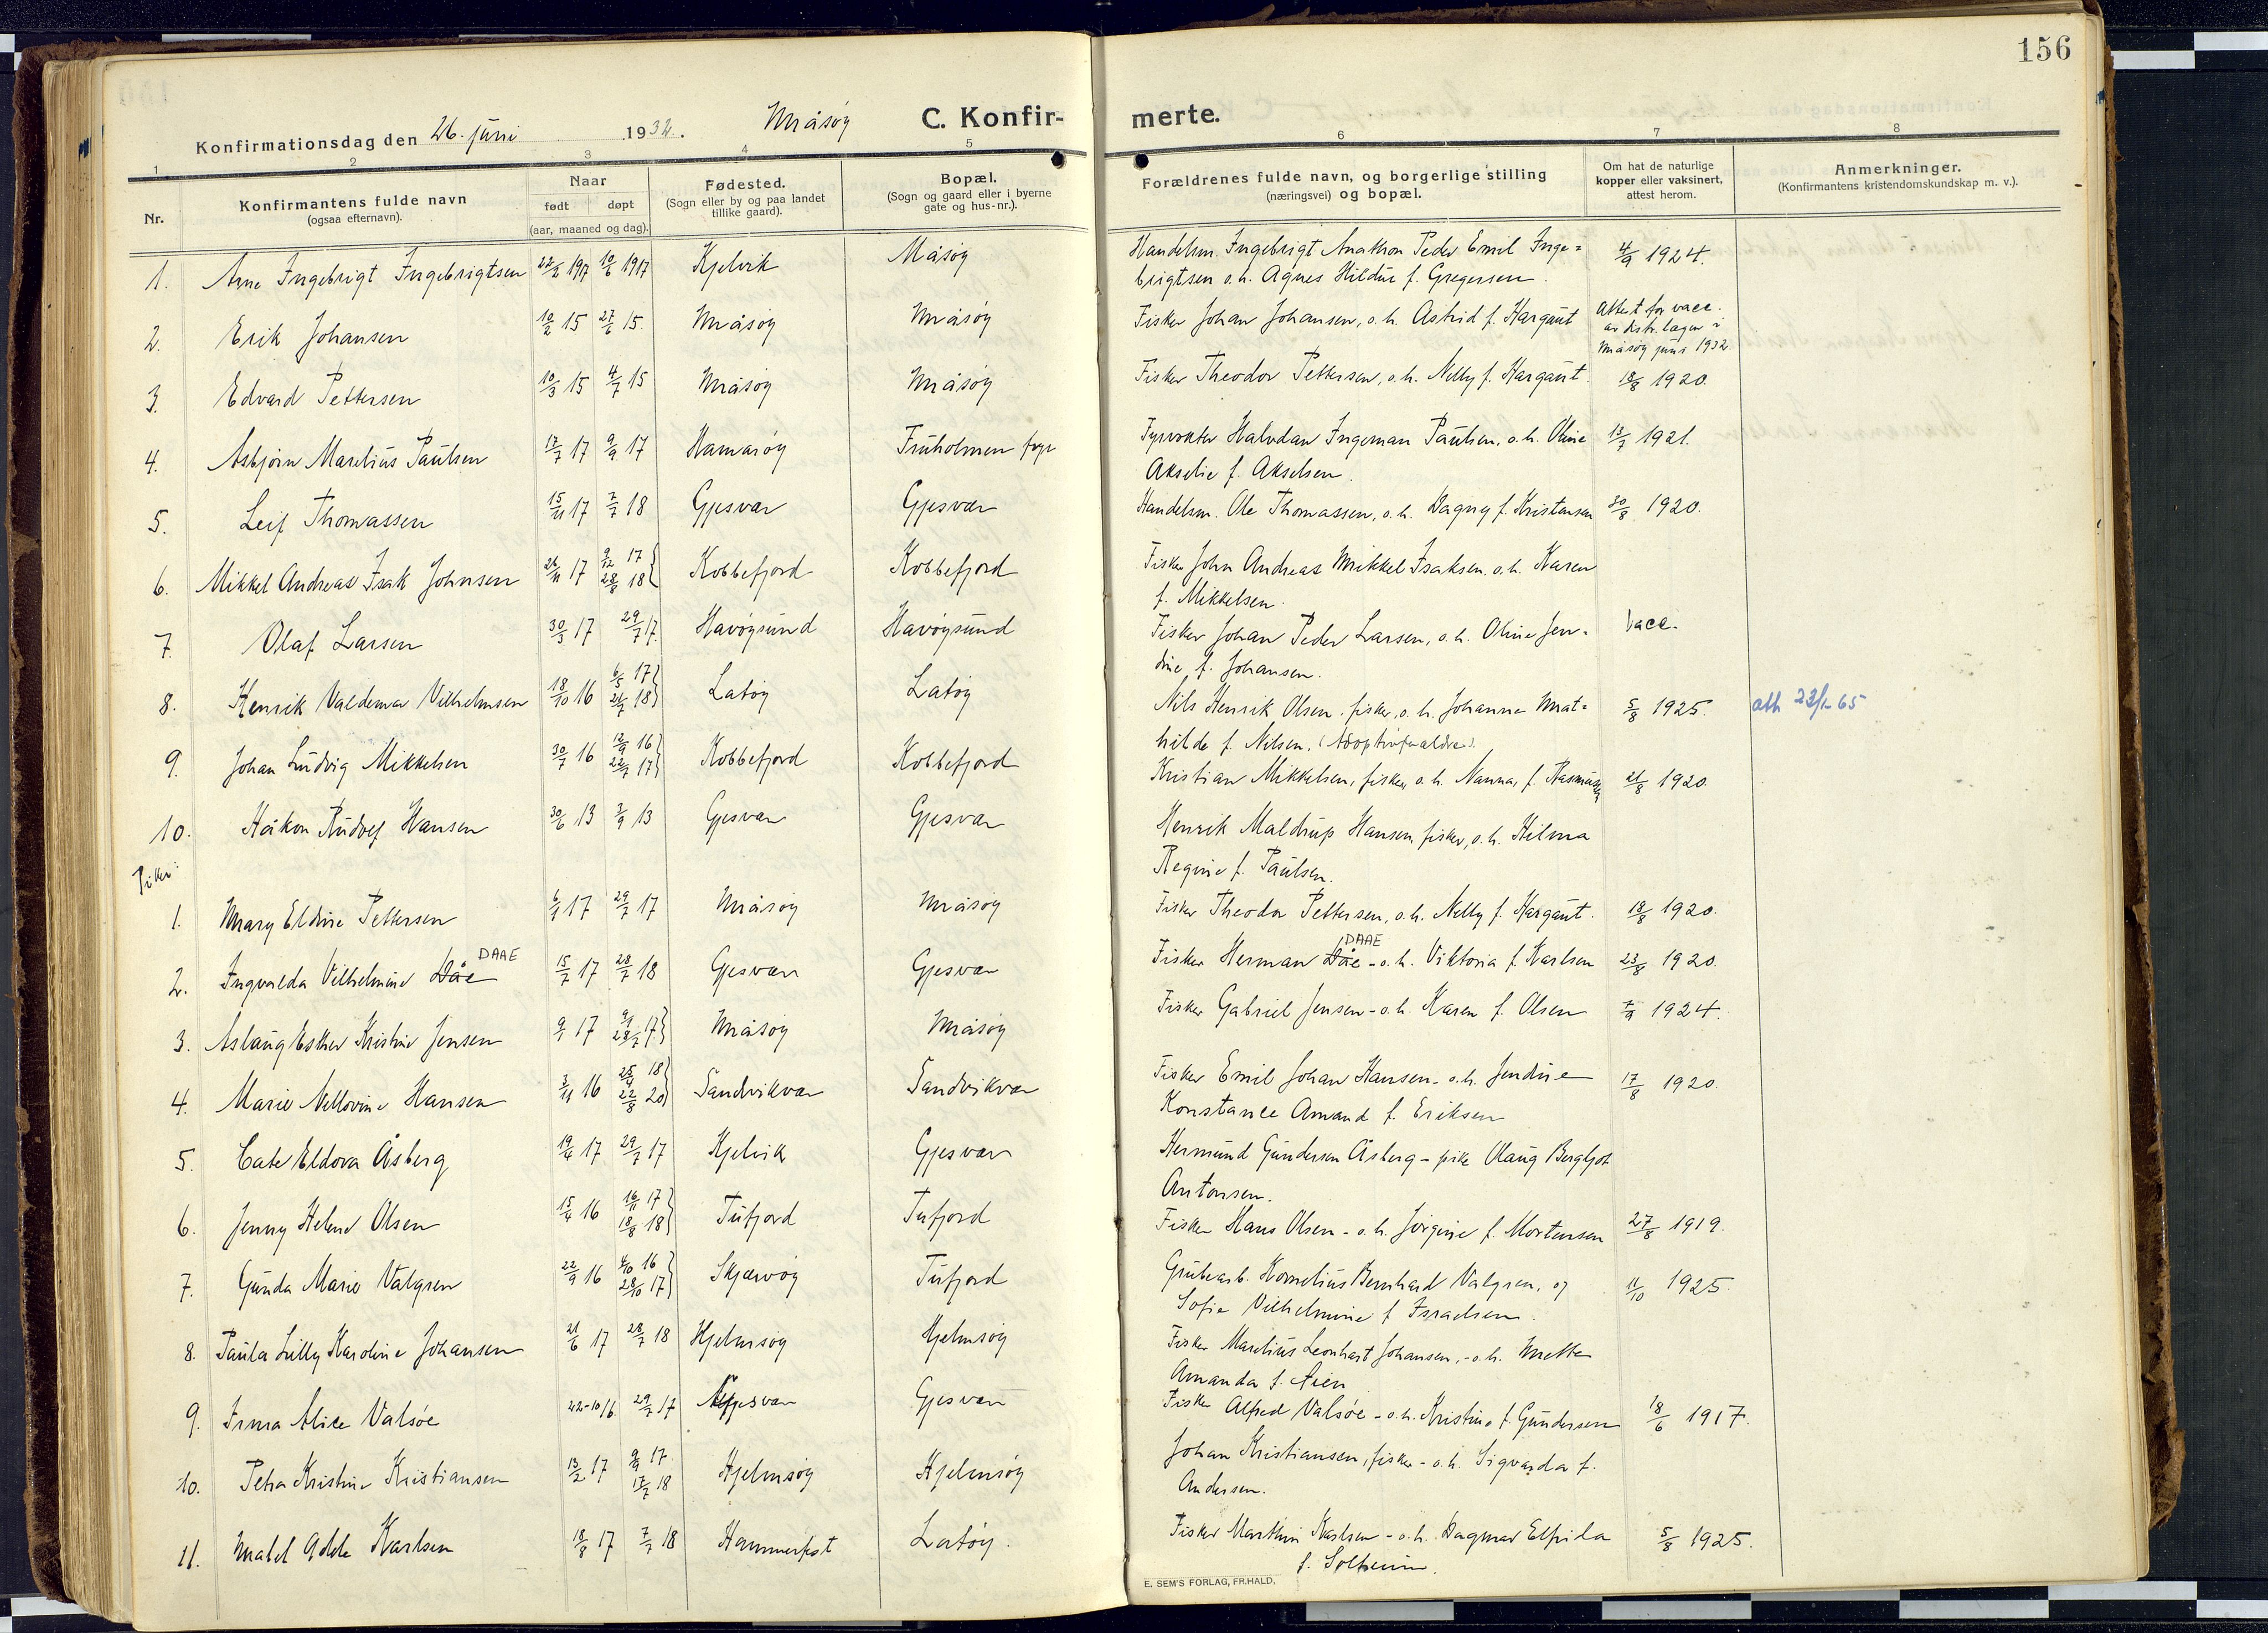 156
Konfirmationsdag den 26. juni 1932. Måsøy C. Konfirmerte.
1 2 3 4 5 6 7 8
Nr.
Konfirmantens fulde navn
(ogsaa efternavn).
Naar
født døpt
(aar, maaned og dag).
Fødested.
(Sogn eller by og paa landet
tillike gaard).
Bopæl.
(Sogn og gaard eller i byerne
gate og hus-nr.).
Forældrenes fulde navn, og borgerlige stilling
(næringsvei) og bopæl.
Om hat de naturlige
kopper eller vaksinert,
attest herom.
Anmerkninger.
(Konfirmantens kristendomskundskap m. v.).
1. Arne Ingebrigt Ingebrigtsen 1917 10/6 1917 Kjelvik Måsøy Handelsm. Ingebrigt Anathon Peder Emil Inge= 4/9 1924.
brigtsen o.h. Agnes Hildur f. Gregersen.
2. Erik Johansen 10/2 15 27/6 15. Måsøy Måsøy Fisker Johan Johansen, o.h. Astrid f. Hargaut Attest for vacc.
av distr. lægen i
Måsøy juni 1932.
3. Edvard Pettersen 10/3 15 4/7 15 Måsøy Måsøy Fisker Theodor Pettersen, o.h. Nelly f. Hargaut. 18/8 1920.
4. Asbjørn Marelius Paulsen 17/7 17 9/9 17 Hamarøy Fruholmen fyr Fyrvokter Halvdan Ingeman Paulsen, o.h. Oline 13/7 1921.
Akselie f. Akselsen.
5. Leif Thomassen 15/11 17 7/7 18 Gjesvær Gjesvær Handelsm. Ole Thomassen, o.h. Dagny f. Kristensen 30/8 1920.
6. Mikkel Andreas Isak Johnsen 26/11 17 9/12 17 28/8 18 Kobbefjord Kobbefjord Fisker John Andreas Mikkel Isaksen o.h. Karen
f. Mikkelsen.
7. Olaf Larsen 30/3 17 29/7 17. Havøysund Havøysund Fisker Johan Peder Larsen, o.h. Oline Jen= Vacc.
dine f. Johansen.
8. Henrik Valdemar Vilhelmsen 18/10 16 6/5 17 21/7 18 Latøy Latøy Nils Henrik Olsen, fisker, o.h. Johanne Mat= 5/8 1925. att 23/1-65
hilde f. Nilsen. (Adoptivforældre).
9. Johan Ludvig Mikkelsen 30/7 16 12/9 16 22/7 17 Kobbefjord Kobbefjord Kristian Mikkelsen, fisker, o.h. Nanna, f. Rasmussen 21/8 1920.
10. Håkon Rudolf Hansen 30/6 13 3/9 13 Gjesvær Gjesvær Henrik Maldrup Hansen, fisker, o.h. Hilma
Regine f. Paulsen.
Piker:
1. Mary Eldine Pettersen 17 29/7 17 Måsøy Måsøy Fisker Theodor Pettersen, o.h. Nelly f. Hargaut. 18/8 1920.
2. Ingvalda Vilhelmine Dåe DAAE 15/7 17 28/7 18 Gjesvær Gjesvær Fisker Herman Dåe DAAE - o.h. Viktoria f. Karlsen 23/8 1920.
3. Aslaug Esther Kristine Jensen 9/1 17 17 Måsøy Måsøy Fisker Gabriel Jensen - o.h. Karen f. Olsen 1924.
4. Marie Nellovine Hansen 3/11 16 25/4 18 22/8 20 Sandvikvær Sandvikvær Fisker Emil Johan Hansen - o.h. Jendine 17/8 1920.
Konstance Amand f. Eriksen
5. Cate Eldova Åsberg 19/4 17 29/7 17 Kjelvik Gjesvær Hermund Gundersen Åsberg - pike Olaug Bergljot
Antonsen.
6. Jenny Helene Olsen 15/4 16 16/11 17 18/8 18 Tufjord Tufjord Fisker Hans Olsen - o.h. Jørgine f. Mortensen 27/8 1919.
7. Gunda Marie Valgren 22/9 16 16 28/10 17 Skjærvøy Tufjord Grubearb. Kornelius Bernhard Valgren, og 11/10 1925.
Sofie Vilhelmine f Israelsen.
8. Paula Lilly Karoline Johansen 21/6 17 28/7 18 Hjelmsøy Hjelmsøy Fisker Marelius Leonhart Johansen, - o.h. Mette
Amanda f. Aren
9. Irma Alice Valsøe 22-10/16 29/7 17 Gjesvær Gjesvær Fisker Alfred Valsøe - o.h. Kristine f. Gundersen 18/6 1917.
10. Petra Kristine Kristiansen 13/2 17 9/9 17 17/7 18 Hjelmsøy Hjelmsøy Johan Kristiansen, fisker - o.h. Sigvarda f.
Andersen.
11. Mabel Adele Karlsen 18/8 17 7/7 18 Hammerfest Latøy. Fisker Marthin Karlsen - o.h. Dagmar Elfrida 5/8 1925.
f. Solheim.
E. SEM'S FORLAG, FR.HALD.